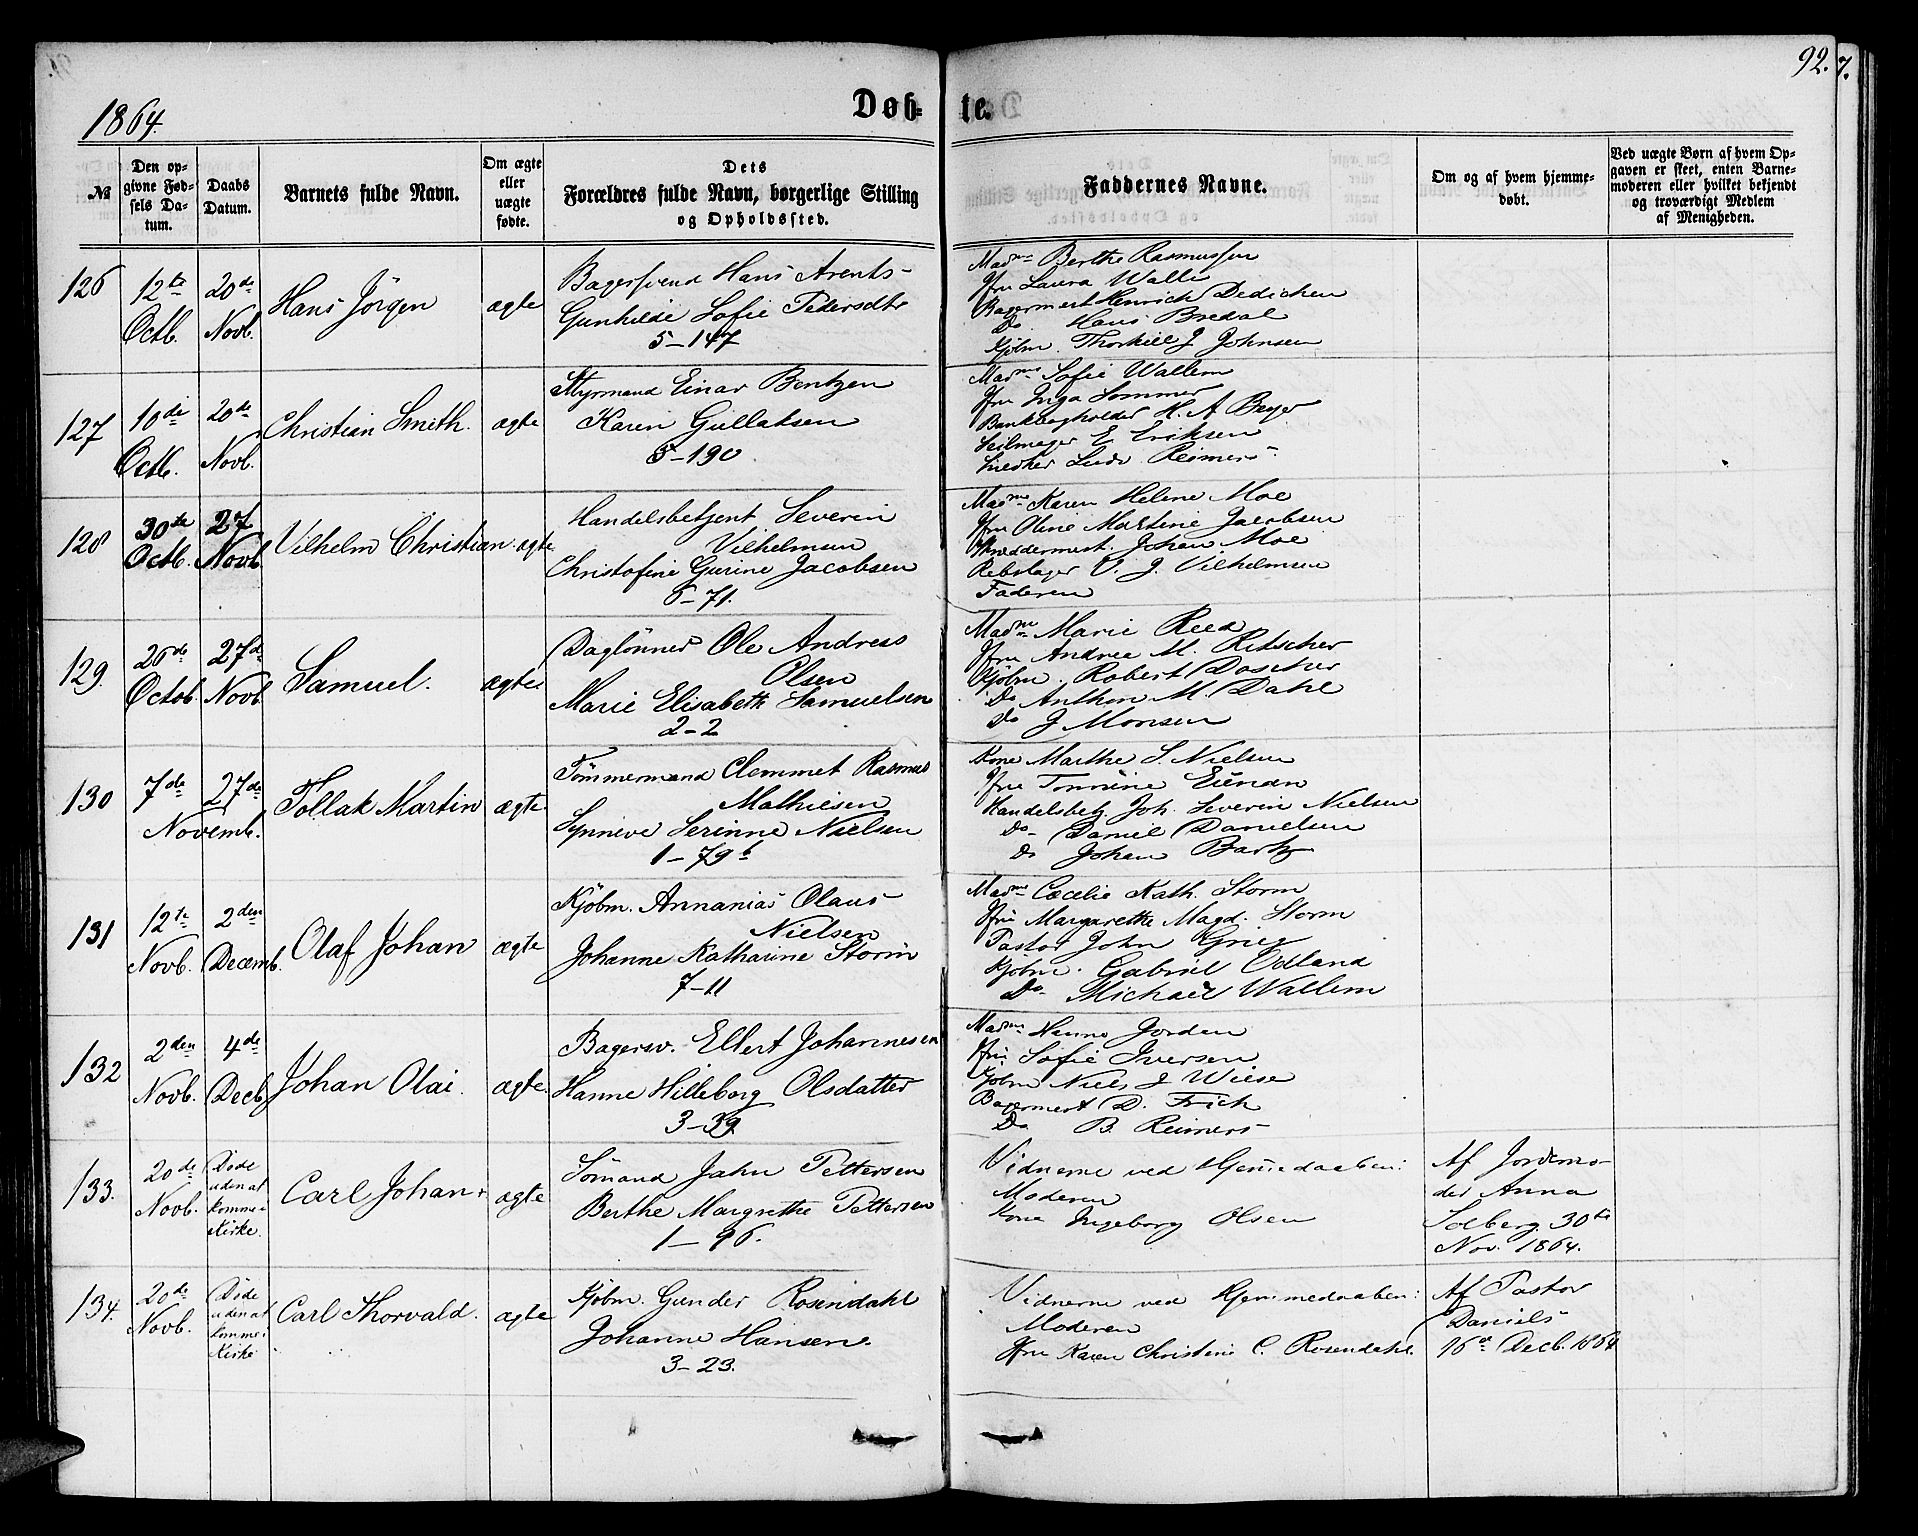 1864.
Døb-
te.
92.
7.
№
Den op-
givne Fød-
sels Da-
tum.
Daabs
Datum.
Barnets fulde Navn.
Om ægte
eller
uægte
fødte.
Dets
Forældres fulde Navn, borgerlige Stilling
og Opholdssted.
Faddernes Navne.
Om og af hvem hjemme-
døbt.
Ved uægte Børn af hvem Op-
gaven er skeet, enten Barne-
moderen eller hvilket bekjendt
og troværdigt Medlem
af Menigheden.
126
12te
Octb.
20de
Novb.
Hans Jörgen
ægte
Bagersvend Hans Arents-
Gunhilde Sofie Pedersdtr
5-147
Madme Berthe Rasmussen
Jfru Laura Walle
Bagermest Henrich Dedichen
Do Hans Bredal
Kjöbm. Thorkill J Johnsen
127
10de
Octb.
20de
Novb.
Christian Smith.
ægte
Styrmand Einar Bentzen
Karen Gullaksen
5-190
Madme Sofie Wallem
Jfru Inga Sommer
Bankbogholder H. A Beyer
Seilmager E Eriksen
Snedker Ludv. Reimers
128
30te
Octb.
27
Novb.
Vilhelm Christian
ægte
Handelsbetjent Severin
Vilhelmsen
Christofine Gurine Jacobsen
6-71.
Madme Karen Helene Moe
Jfru Oline Martine Jacobsen
Skreddermest. Johan Moe
Rebslager V. J. Vilhelmsen
Faderen
129.
26de
Octob.
27de
Novb.
Samuel.
ægte
Daglönner Ole Andreas
Olsen
Marie Elisabeth Samuelsen
2-2
Madme Marie Reed
Jfru Andrea M. Ritscher
Kjöbm. Robert Doscher
Do Anthon M. Dahl
Do J Monsen
130
7de
27de
Novemb.
Tollak Martin
ægte
Tömmermand Clemmet Rasmus
Mathiesen
Synneve Serinne Nielsen
1-79b
Kone Marthe S. Nielsen
Jfru Tonnine
Handelsbetj. Joh. Severin Nielsen
Do Daniel Danielsen
Do Johan
131
12te
Novb.
2den
Decemb.
Olaf Johan
ægte
Kjöbm. Annanias Olaus
Nielsen
Johanne Katharine Storm
7-11
Madme Cæcelie Kath. Storm
Jfru Margarethe Magd. Storm
Pastor John Grieg
Kjöbm. Gabriel Edland
Do Michael Wallem
132
2den
Novb.
4de
Decb.
Johan Olai.
ægte
Bagersv. Ellert Johannesen
Hanne Hilleborg Olsdatter
3-39
Madme Hanne Jorden
Jfru Sofie Iversen
Kjöbm Niels J Wiese
Bagermest D. Frich
Do B. Reimers
133.
20de
Novb.
Döde
uden at
komme i
Kirke.
Carl Johan
ægte
Sömand Jahn Pettersen
Berthe Margrethe Pettersen
1-96.
Vidnerne ved Hjemmedaaben:
Moderen
Kone Ingeborg Olsen
Af Jordemo-
der Anna
Solberg. 30te
Nov. 1864.
134.
20de
Novb.
Döde
uden at
komme i
Kirke
Carl Thorvald.
ægte
Kjöbm. Gunder Rosendahl
Johanne Hansen.
3-23.
Vidnerne ved Hjemmedaaben:
Moderen
Jfru Karen Christine C. Rosendahl.
Af Pastor
Daniels
16de Decb. 1864